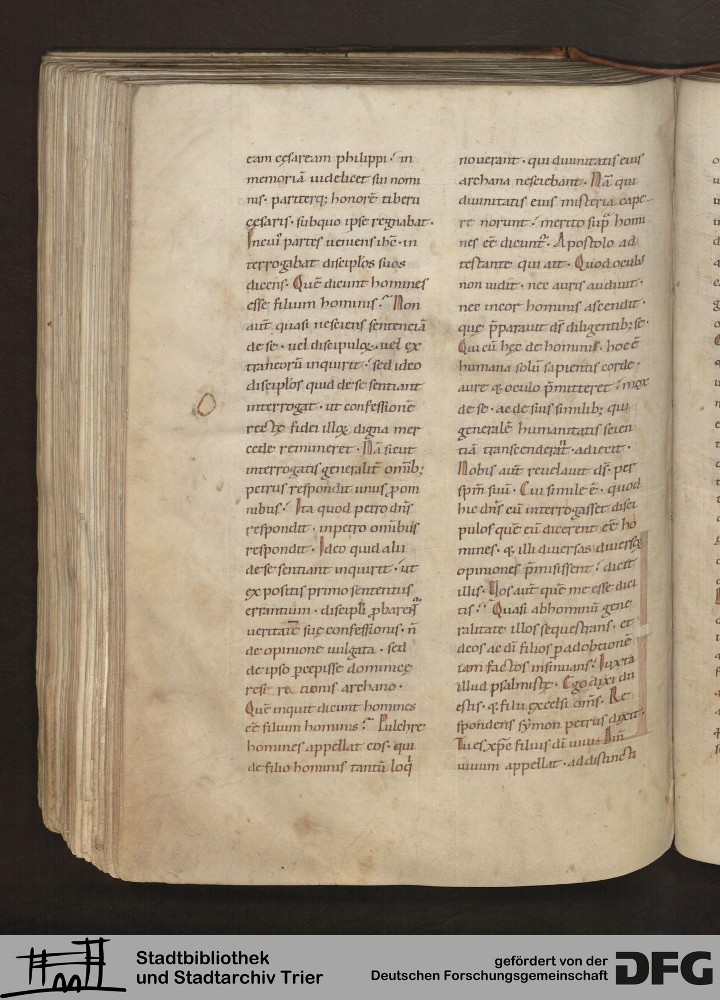 eam cęsaream philippi. in
memoriā uidelicet sui nomi
nis. pariterq; honorē tiberii
cęsaris. subquo ipse regnabat.
partes ueniens ihc̄. in
terrogabat discipłos suos
dicens. Quē dicunt homines
esse filium hominis? Non
aūt quasi nesciens sentenciā
de se. uel discipuloꝝ. uel ex
traneorū inquirit. sed ideo
discipłos quid de se sentiant
interrogat. ut confessionē
rectę fidei illoꝝ digna mer
cede remuneret. Nā sicut
interrogatis generalit̄ omīb;
petrus respondit unus ꝓ om
nibus. Ita quod petro dn̄s
respondit. inpetro omnibus
respondit. Ideo quid alii
de se sentiant inquirit. ut
expositis primo sententiis
errantium. discipłi ꝓbarent̄
ueritatē suę confessionis. n̄
de opinione uulgata. sed
de ipso ꝑcepisse dominicę
archano.
Quē inquit dicunt homines
eē̄ filium hominis? Pulchre
homines appellat eos. qui
de filio hominis tantū loq̄
nouerant. qui diuinitatis eius
archana nesciebant. Nā qui
diuinitatis eius misteria cape
re norunt. merito sup̄ homi
nes eē̄ dicunt̄. Apostolo ad
testante qui ait. Quod oculus
non uidit. nec auris audiuit.
nec incor hominis ascendit.
que p̄parauit ds̄ diligentib; se.
Qui cū hęc de hominis. hoc ē̄
humana solū sapientis corde.
aure & oculo p̄mitteret. mox
de se. ac de suis similib; qui
generalē humanitatis scien
tiā transcenderant̄. adiecit.
Nobis aūt reuelauit ds̄. per
spm̄ suū. Cui simile ē̄. quod
hic dn̄s cū interrogasset disci
pulos quē eū dicerent eē̄ ho
mines. & illi diuersas diuersoꝝ
opiniones p̄misissent. dicit
illis. Uos aūt quē me esse dici
tis? Quasi abhominū gene
ralitate illos sequestrans. et
deos ac di filios ꝑ adoptionē
iam factos insinuans. Iuxta
illud psalmistę. Ego dixi dii
estis. & filii excelsi oms̄. Re
spondens symon petrus dixit.
Tu es xp̄c filius di uiui.
uiuum appellat. ad distincti
Stadtbibliothek
und Stadtarchiv Trier
gefördert von der
Deutschen Forschungsgemeinschaft
DFG